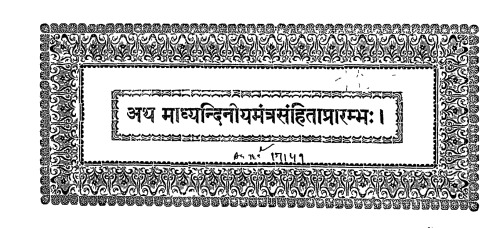 अथ माध्यन्दिनीयमंत्रसंहिताप्रारम्भः।